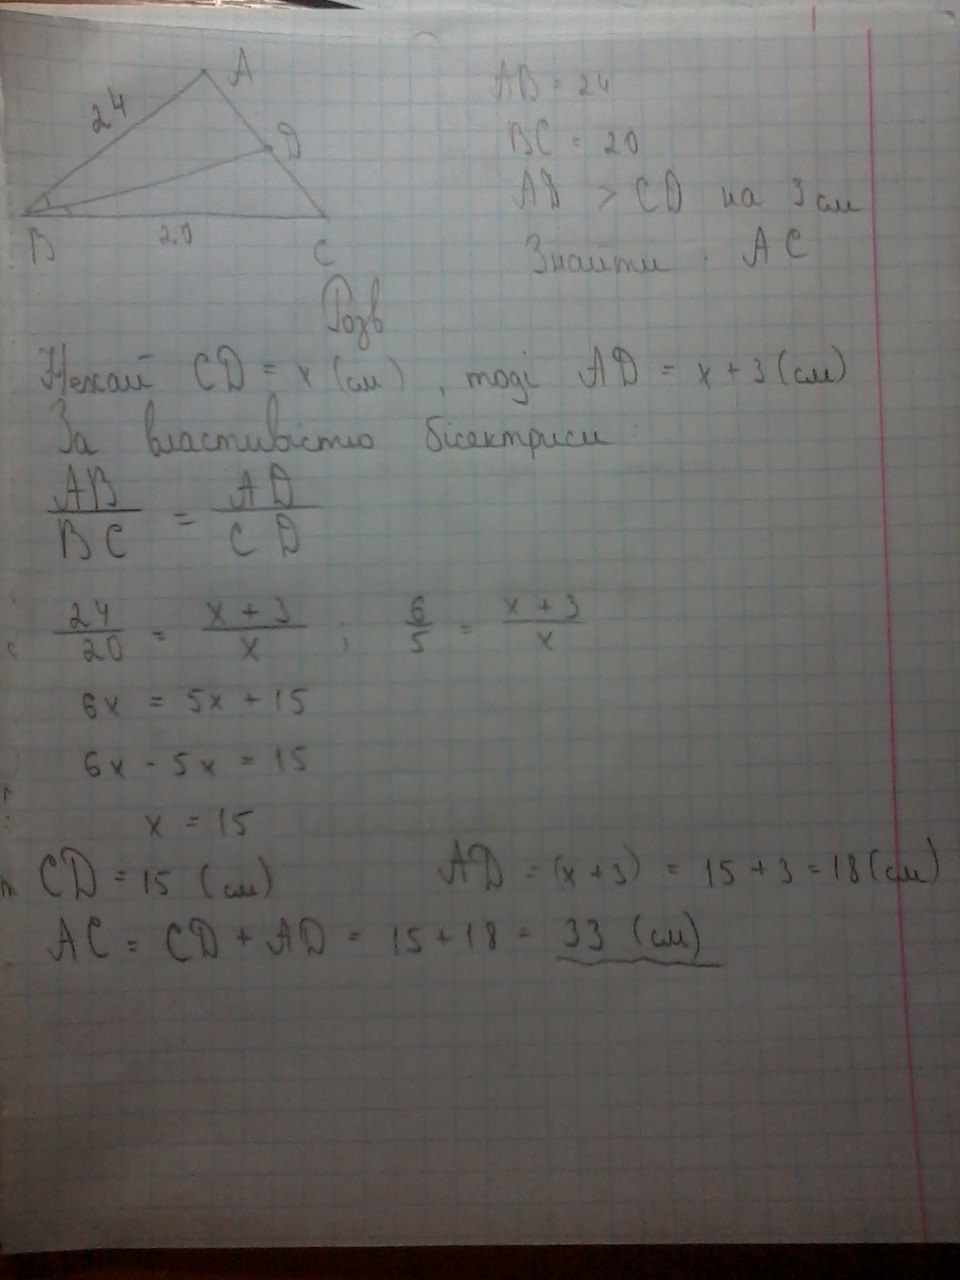 A
24
D
B
20
C
AB = 24
BC = 20
AD > CD на 3 см
Знайти: AC
Розв
Нехай CD = x (см), тоді AD = x + 3 (см)
За властивістю бісектриси:
AB / BC = AD / CD
24 / 20 = x + 3 / x ; 6 / 5 = x + 3 / x
6x = 5x + 15
6x - 5x = 15
x = 15
CD = 15 (см) AD = (x + 3) = 15 + 3 = 18 (см)
AC = CD + AD = 15 + 18 = 33 (см)